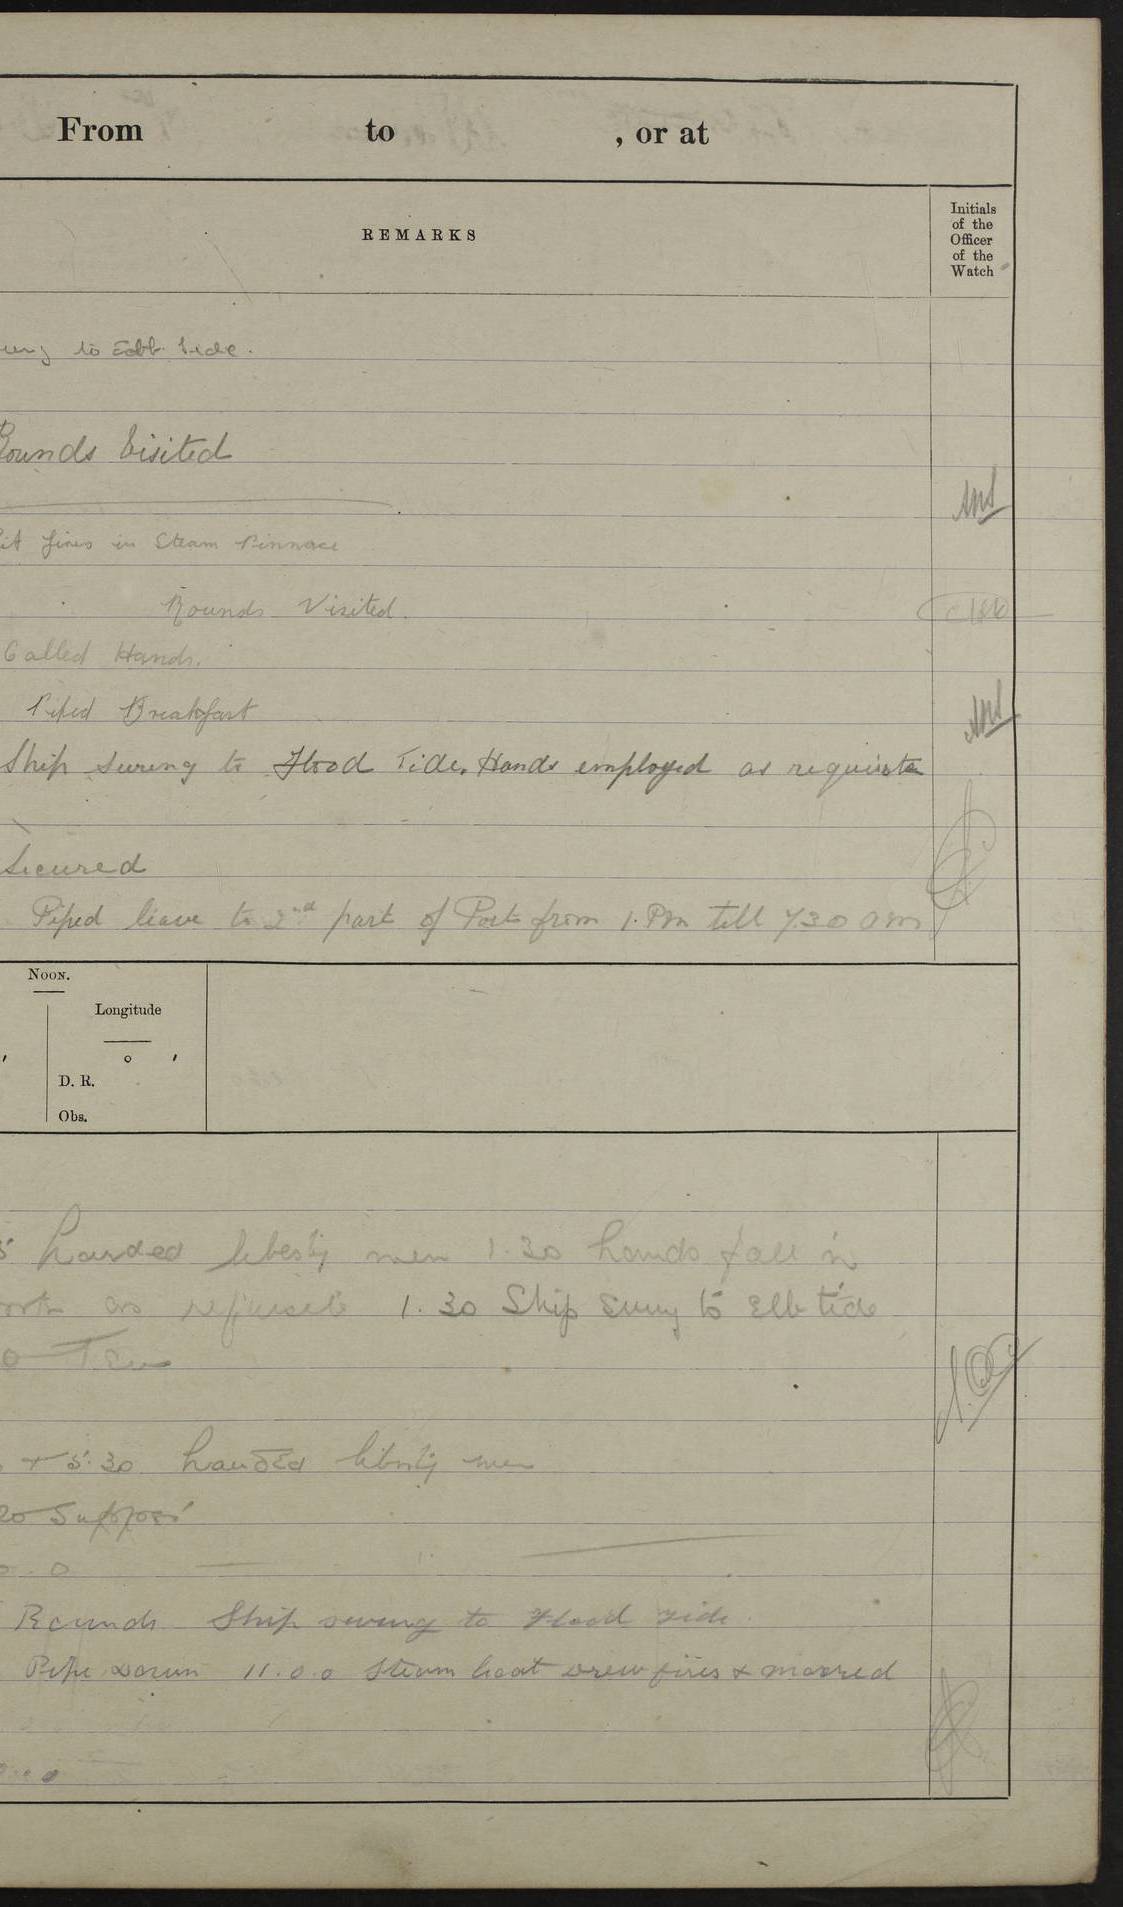 From to , or at
REMARKS
Initials
of the
Officer
of the
Watch
to Ebb tide.
Rounds Visited
fires in Steam Pinnace
Rounds Visited.
Called Hands.
Piped Breakfast
Ship swung to Flood Tide. Hands employed as requisite
Secured
Piped leave to 2nd part of Port from 1. Pm till 7.30 am
NOON.
Longitude
° '
D. R.
Obs.
landed liberty men 1.30 hands fall in
as requisite 1.30 Ship swung to Ebb tide
+ 5.30 landed liberty men
Supper
Rounds Ship swung to Flood Tide.
Pipe Down 11.0.0 Steam boat drew fires & moored